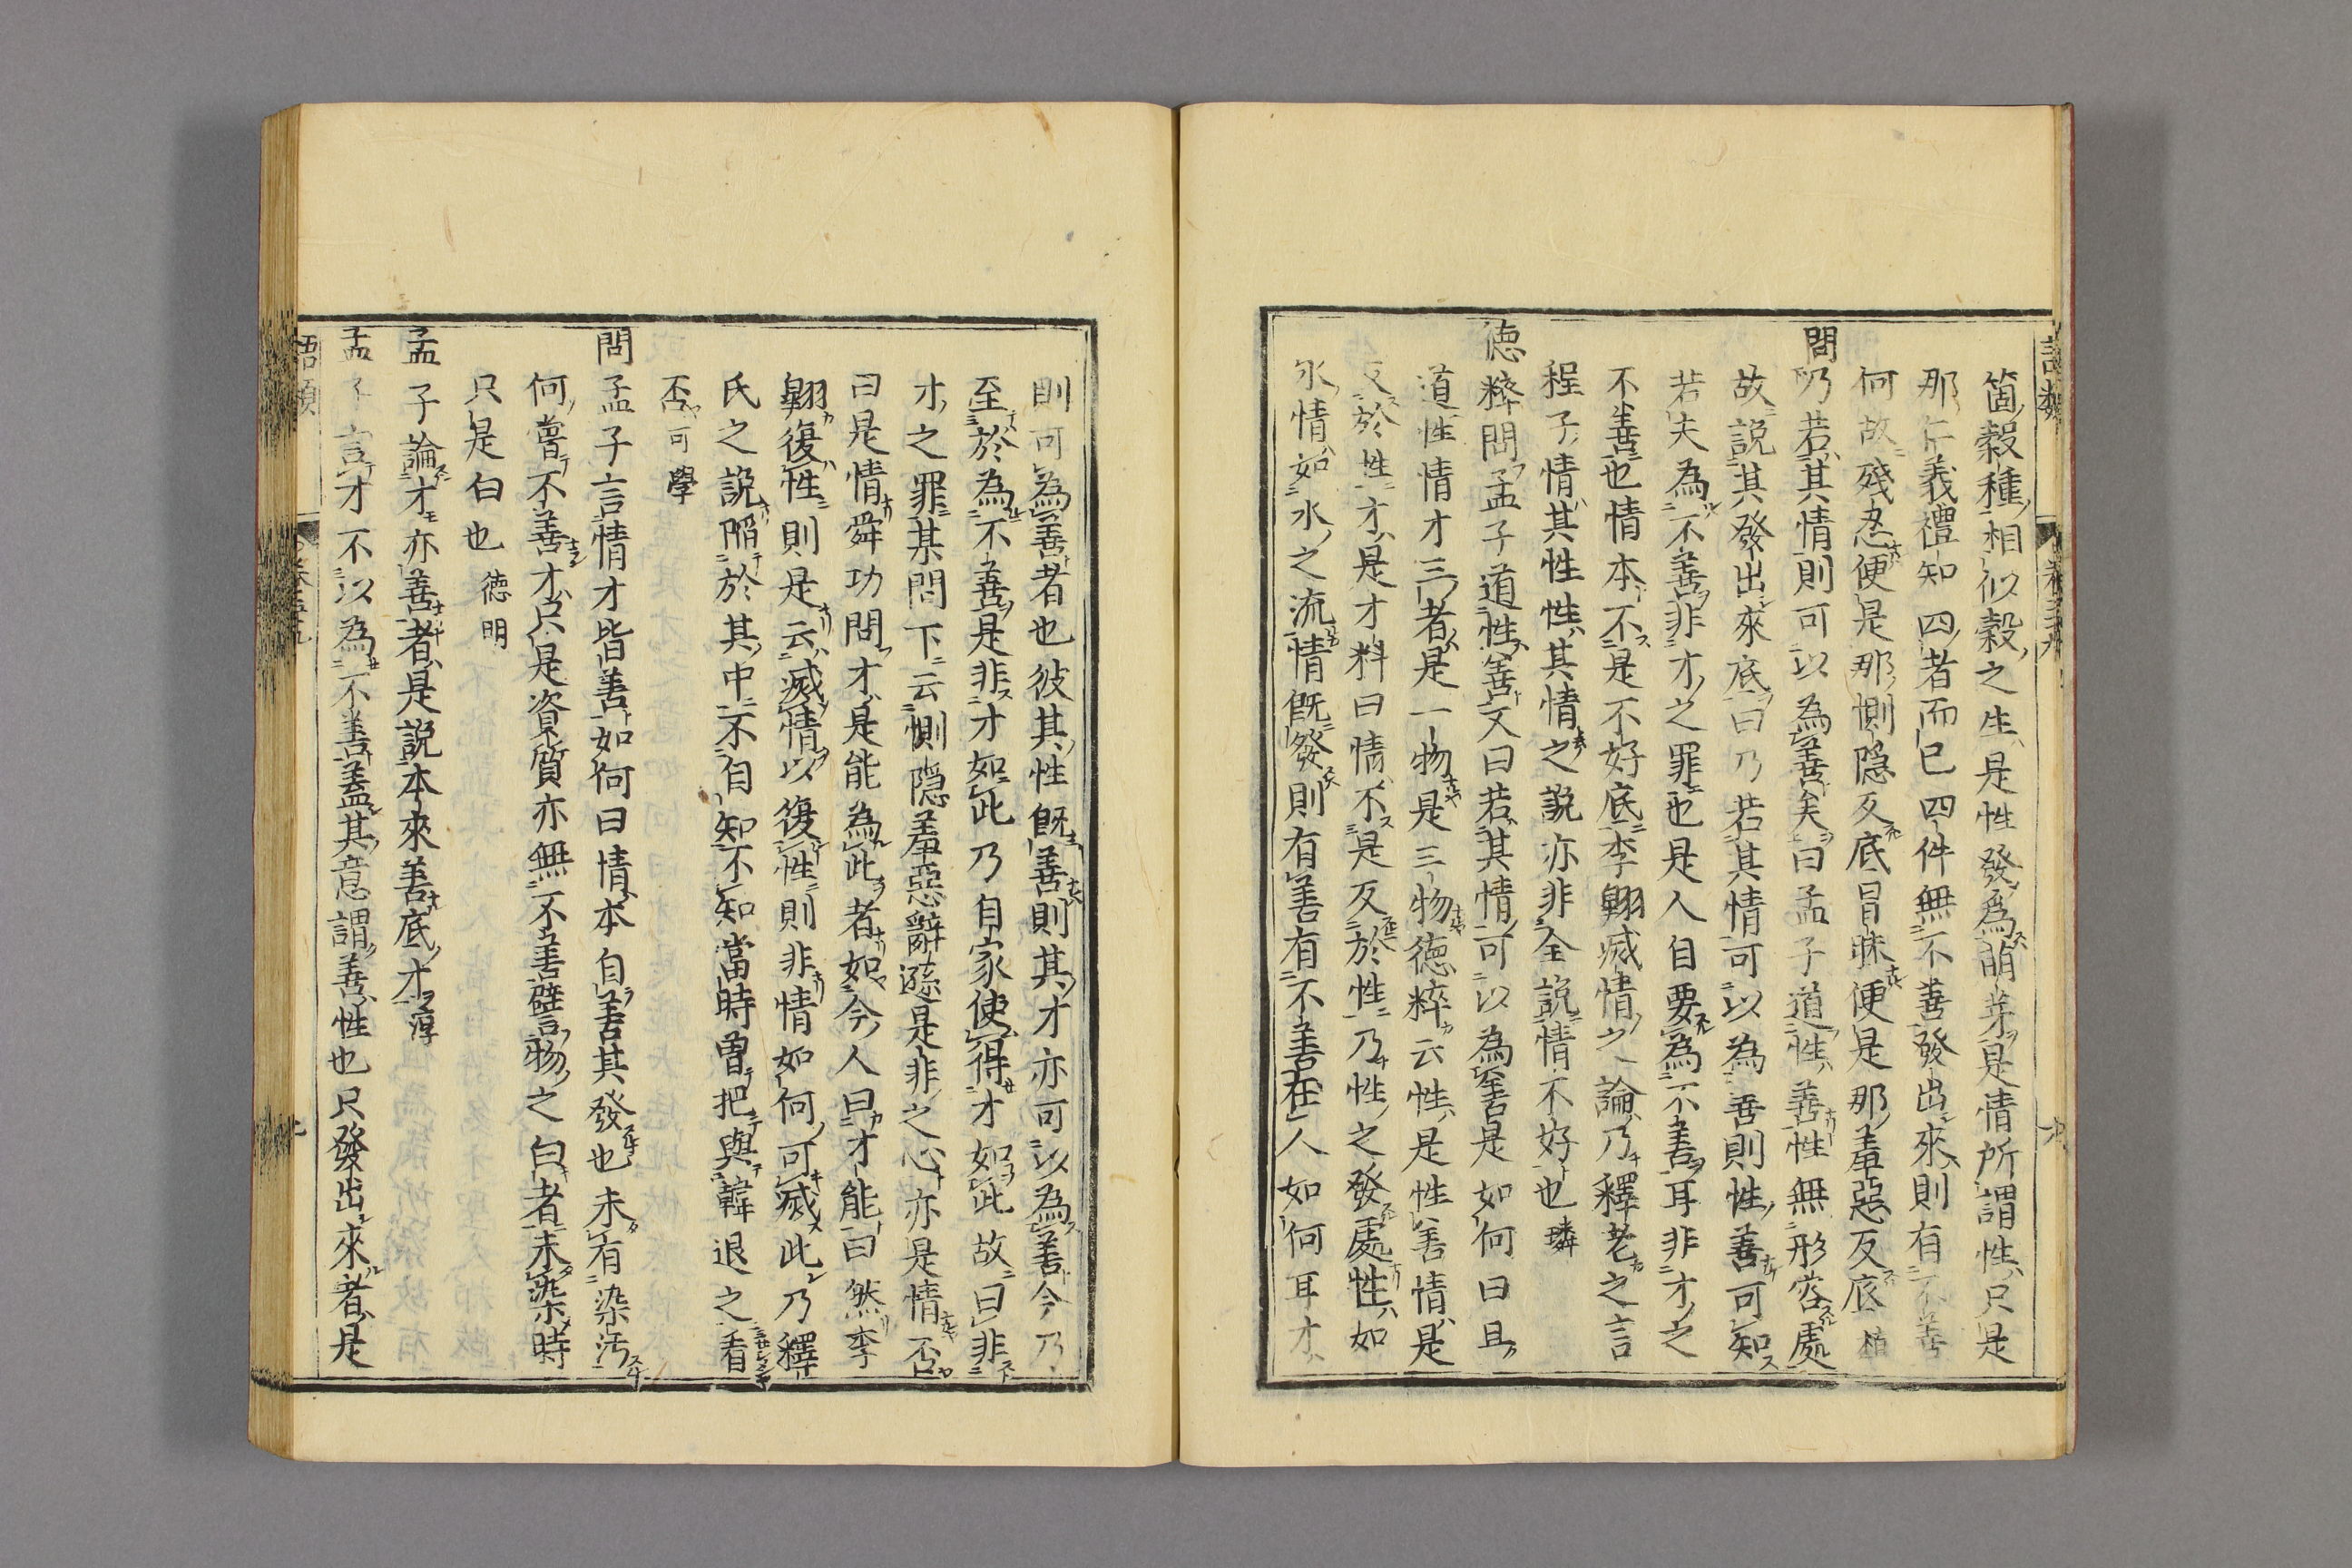 語類
卷五十九
九
箇穀種相似穀之生是性發爲萌芽是情所謂性只是
那仁義禮知四者而已四件無不善發出來則有不善
何故殘忍便是那惻隠反底冒昧便是那羞惡反底 植
問乃若其情則可以為善矣曰孟子道性善性無形容處
故說其發出來底曰乃若其情可以為善則性善可知
若夫為不善非才之罪也是人自要為不善耳非才之
不善也情本不是不好底李翱滅情之論乃釋老之言
程子情其性性其情之説亦非全説情不好也 璘
徳粹問孟子道性善又曰若其情可以為善是如何曰且
道性情才三者是一物是三物徳粹云性是性善情是
反於性才是才料曰情不是反於性乃性之發處性如
水情如水之流情既發則有善有不善在人如何耳才
則可為善者也彼其性既善則其才亦可以為善今乃
至於為不善是非才如此乃自家使得才如此故曰非
才之罪某問下云惻隠羞惡辭遜是非之心亦是情否
曰是情舜功問才是能為此者如今人曰才能曰然李
翱復性則是云滅情以復性則非情如何可滅此乃釋
氏之說陷於其中不自知不知當時曾把與韓退之看
否 可學
問孟子言情才皆善如何曰情本自善其發也未有染汚
何嘗不善才只是資質亦無不善譬物之白者未染時
只是白也 徳明
孟子論才亦善者是説本來善底才 淳
孟子言才不以為不善蓋其意謂善性也只發出來者是
語類
卷五十九